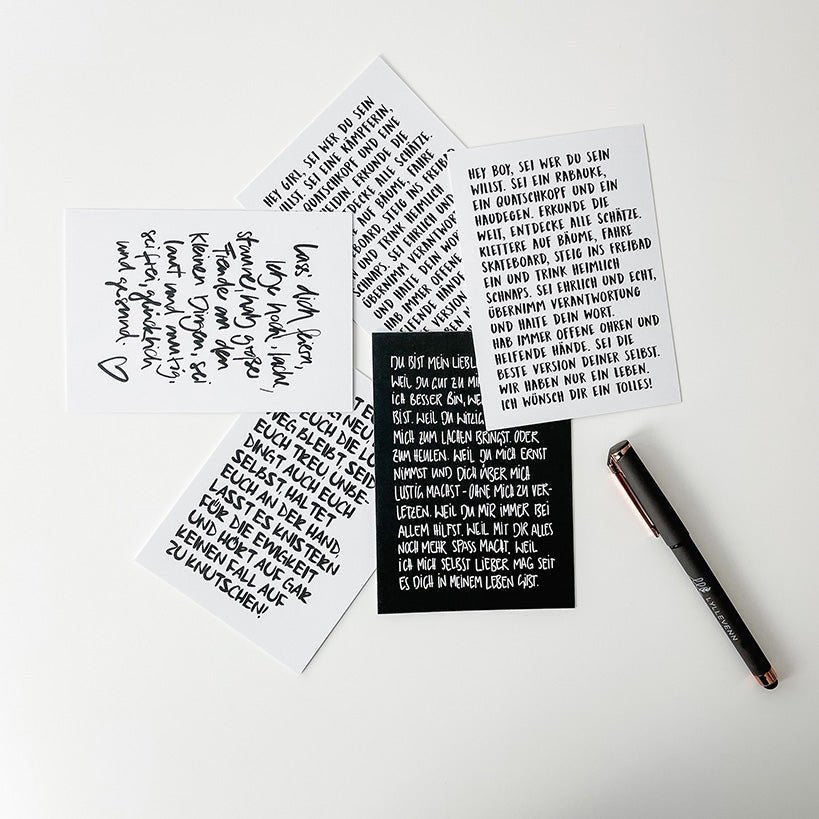 HEY GIRL, SEI WER DU SEIN
WILLST. SEI EINE KÄMPFERIN,
QUATSCHKOPF UND EINE
HELDIN. ERKUNDE DIE
ENTDECKE ALLE SCHÄTZE.
AUF BÄUME, FAHRE
STEIG INS FREIBAD
UND TRINK HEIMLICH
SCHNAPS. SEI EHRLICH UND
ÜBERNIMM VERANTWORT
UND HALTE DEIN WOR
HAB IMMER OFFENE
HELFENDE HÄNDE.
VERSION
HABEN NUR
HEY BOY, SEI WER DU SEIN
WILLST. SEI EIN RABAUKE,
EIN QUATSCHKOPF UND EIN
HAUDEGEN. ERKUNDE DIE
WELT, ENTDECKE ALLE SCHÄTZE.
KLETTERE AUF BÄUME, FAHRE
SKATEBOARD, STEIG INS FREIBAD
EIN UND TRINK HEIMLICH
SCHNAPS. SEI EHRLICH UND ECHT,
ÜBERNIMM VERANTWORTUNG
UND HALTE DEIN WORT.
HAB IMMER OFFENE OHREN UND
HELFENDE HÄNDE. SEI DIE
BESTE VERSION DEINER SELBST.
WIR HABEN NUR EIN LEBEN.
ICH WÜNSCH DIR EIN TOLLES!
Lass' dich feiern,
lebe hoch, lache,
staune, hab große
Freude an den
kleinen Dingen, sei
laut und mutig,
seifter, glücklich
und gesund.
EUCH DIE
WEG BLEIBT. SEID
EUCH TREU UNBE-
DINGT AUCH EUCH
SELBST. HALTET
EUCH AN DER HAND,
LASST ES KNISTERN
FÜR DIE EWIGKEIT
UND HÖRT AUF GAR
KEINEN FALL AUF
ZU KNUTSCHEN!
DU BIST MEIN LIEBL
WEIL DU GUT ZU MI
ICH BESSER BIN, WE
BIST. WEIL DU WITZIG
MICH ZUM LACHEN BRINGST. ODER
ZUM HEULEN. WEIL DU MICH ERNST
NIMMST UND DICH ÜBER MICH
LUSTIG MACHST - OHNE MICH ZU VER-
LETZEN. WEIL DU MIR IMMER BEI
ALLEM HILFST. WEIL MIT DIR ALLES
NOCH MEHR SPASS MACHT. WEIL
ICH MICH SELBST LIEBER MAG SEIT
ES DICH IN MEINEM LEBEN GIBT.
LYLLEVENN